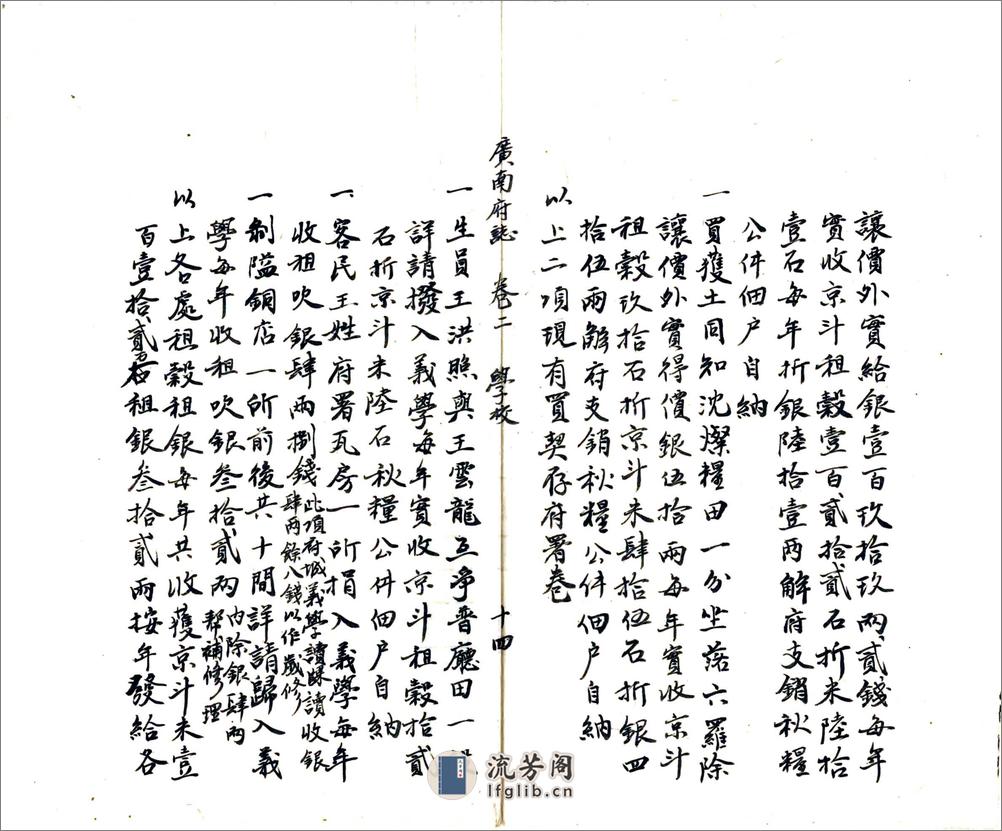 讓價外實給銀壹百玖拾玖兩貳錢每年
實收京斗租穀壹百貳拾貳石折米陸拾
壹石每年折銀陸拾壹兩解府支銷秋糧
公件佃户自納
一買獲土同知沈燦糧田一分坐落六羅除
讓價外實得價銀伍拾兩每年實收京斗
租穀玖拾石折京斗米肆拾伍石折銀四
拾伍兩觧府支銷秋糧公件佃户自納
以上二項現有買契存府署卷
廣南府誌 卷二 學校 十四
一生員王洪照與王雲龍互淨普廳田一
詳請撥入義學每年實收京斗租穀拾貳
石折京斗米陸石秋糧公件佃户自納
一客民王姓府署瓦房一所捐入義學每年
收租吹銀肆兩捌錢此項府城義學讀課讀收銀
肆兩餘八錢以作歲修
一剝隘銅店一所前後共十間詳請歸入義
學每年收租吹銀叁拾貳兩内除銀肆兩
幫補修理
以上各處租穀租銀每年共收獲京斗米壹
百壹拾貳石租銀叁拾貳兩按年發給各
流芳阁
lfglib.cn